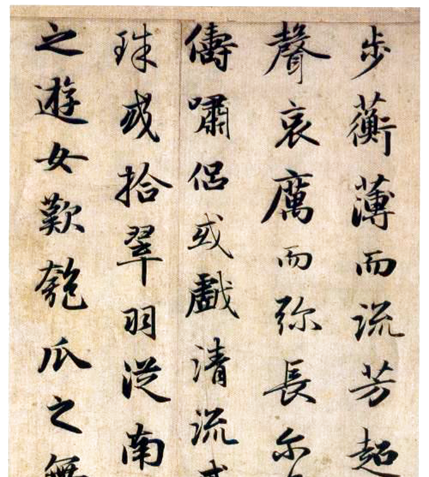 步蘅薄而流芳超
聲哀厲而弥長尔
儔嘯侶或戲清流或
珠或拾翠羽從南
之遊女歎匏瓜之無